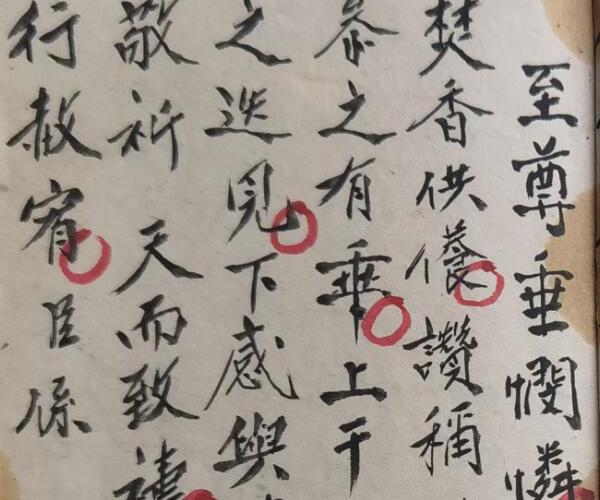 至尊垂憫憐
焚香供養讚稱
泰之有乖上干
之迭見下感與
敬祈 天而致禱
行赦宥臣係